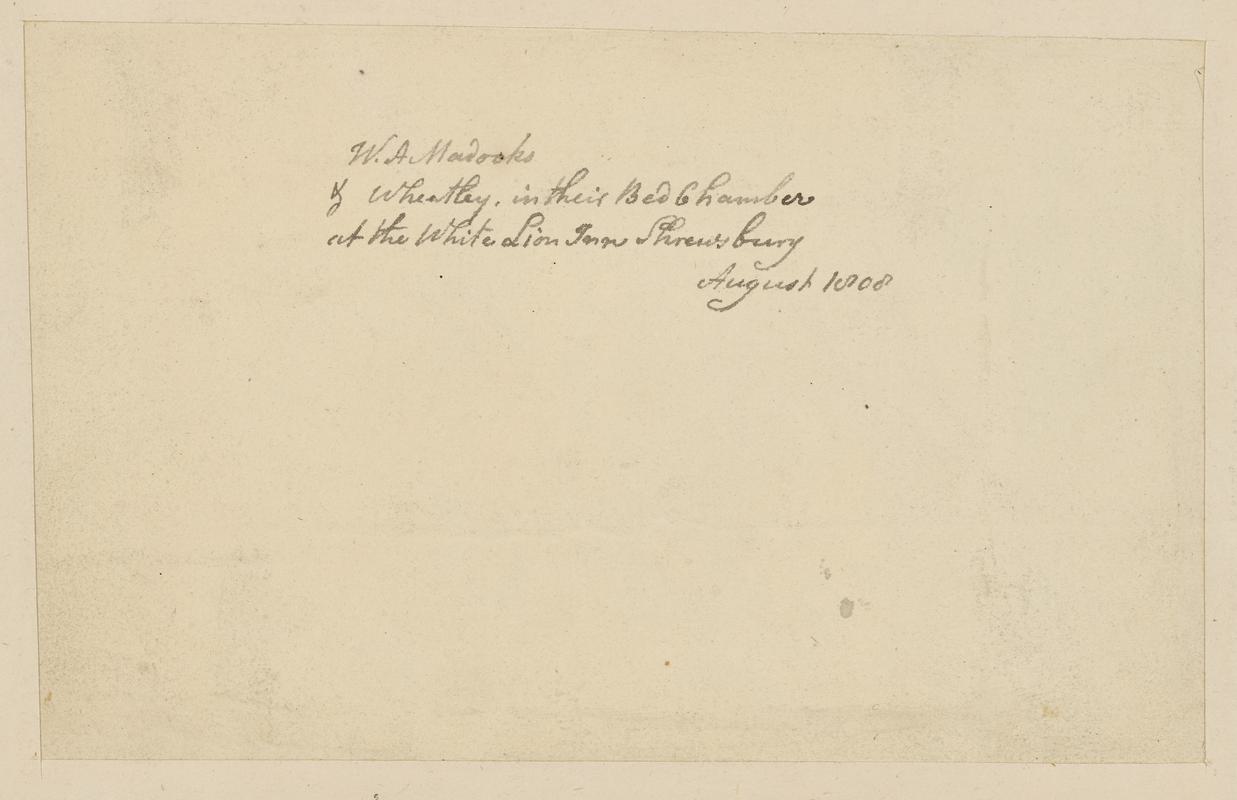 W. A Madocks
& Wheatley, in their Bed Chamber
at the White Lion Inn Shrewsbury
August 1808